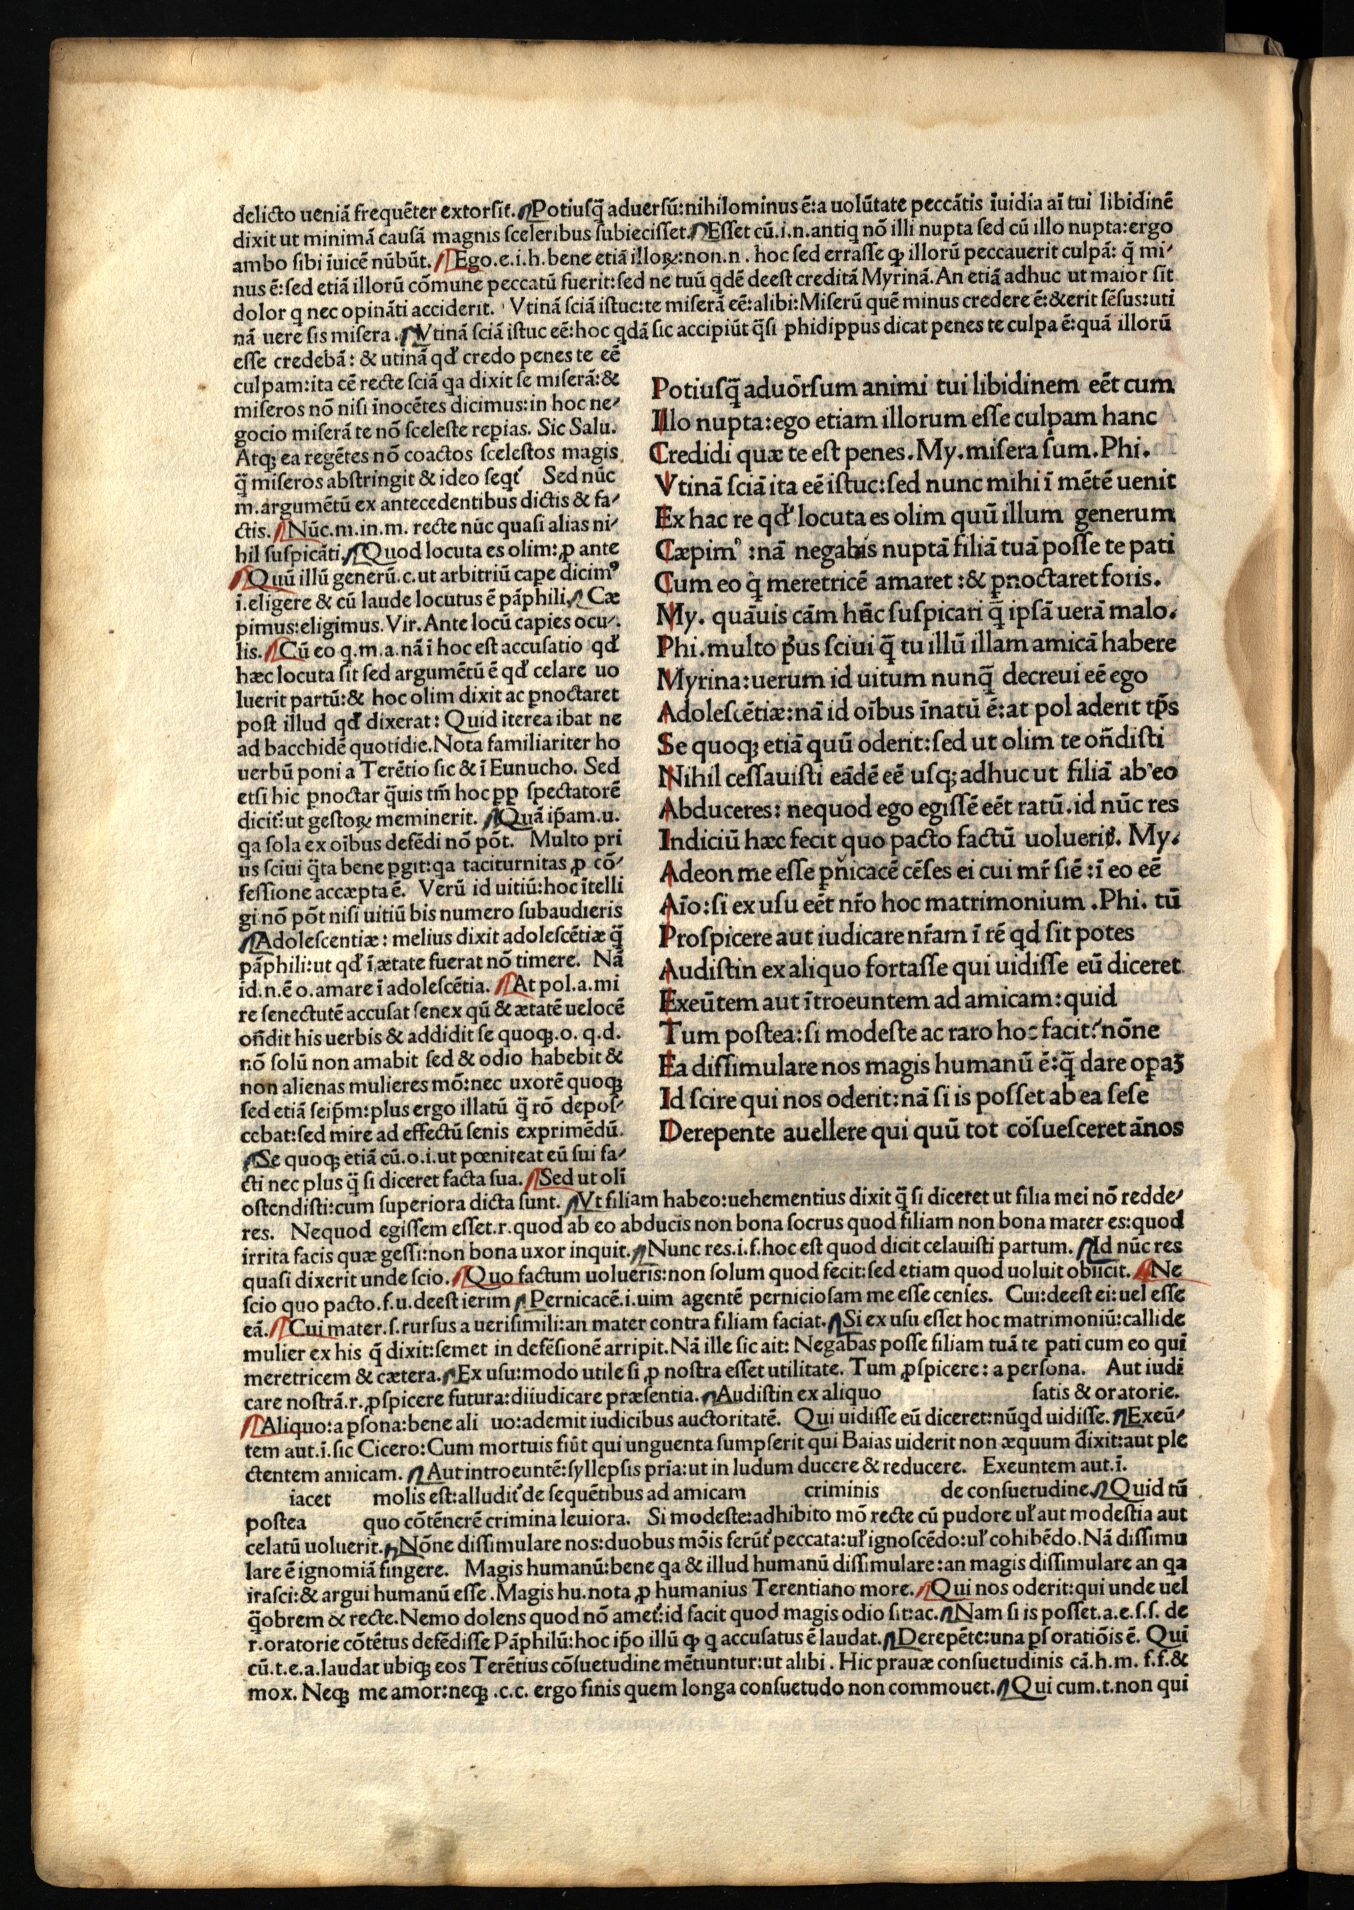 delicto ueniā frequēter extorsit. Potiusq̄ aduersū:nihilominus ē:a uolūtate peccātis īuidia aī tui libidinē
dixit ut minimā causā magnis sceleribus subiecisset. Esset cū.i.n.antiq nō illi nupta sed cū illo nupta:ergo
ambo sibi īuicē nūbūt. Ego.e.i.h.bene etiā illoꝝ:non.n. hoc sed errasse ꝙ illorū peccauerit culpā: q̄ mi-
nus ē:sed etiā illorū cōmune peccatū fuerit:sed ne tuū qdē deest creditā Myrinā. An etiā adhuc ut maior sit
dolor q nec opināti acciderit. Vtinā sciā istuc:te miserā eē:alibi:Miserū quē minus credere ē:&erit sēsus:uti
nā uere sis misera. Vtinā sciā istuc eē:hoc qdā sic accipiūt q̄si phidippus dicat penes te culpa ē:quā illorū
esse credebā: & utinā qd' credo penes te eē
culpam:ita eē recte sciā qa dixit se miserā:&
miseros nō nisi īnocētes dicimus:in hoc ne-
gocio miserā te nō sceleste repias. Sic Salu.
Atqꝫ ea regētes nō coactos scelestos magis
q̄ miseros abstringit & ideo seqt' Sed nūc
m.argumētū ex antecedentibus dictis & fa-
ctis. Nūc.m.in.m. recte nūc quasi alias ni-
hil suspicāti. Quod locuta es olim:ꝓ ante
Quū illū generū.c.ut arbitriū cape dicimꝰ
i.eligere & cū laude locutus ē pāphili. Cæ
pimus:eligimus. Vir. Ante locū capies ocu-
lis. Cū eo q.m.a.nā ī hoc est accusatio qd'
hæc locuta sit sed argumētū ē qd' celare uo
luerit partū:& hoc olim dixit ac ꝑnoctaret
post illud qd' dixerat: Quid iterea ibat ne
ad bacchidē quotidie. Nota familiariter ho
uerbū poni a Terētio sic & ī Eunucho. Sed
etsi hic ꝑnoctar q̄uis tm̄ hoc ꝓp spectatorē
dicit':ut gestoꝝ meminerit. Quā ip̄am.u.
qa sola ex oībus defēdi nō pōt. Multo pri
us sciui q̄ta bene ꝑgit:qa taciturnitas ꝓ cō-
fessione accæpta ē. Verū id uitiū:hoc ītelli
gi nō pōt nisi uitiū bis numero subaudieris
Adolescentiæ: melius dixit adolescētiæ q̄
pāphili:ut qd' ī ætate fuerat nō timere. Nā
id.n.ē o.amare ī adolescētia. At pol.a.mi
re senectutē accusat senex qū & ætatē uelocē
on̄dit his uerbis & addidit se quoqꝫ.o. q.d.
nō solū non amabit sed & odio habebit &
non alienas mulieres mō:nec uxorē quoqꝫ
sed etiā seip̄m:plus ergo illatū q̄ rō depos-
cebat:sed mire ad effectū senis exprimēdū.
Se quoqꝫ etiā cū.o.i.ut pœniteat eū sui fa-
cti nec plus q̄ si diceret facta sua. Sed ut olī
Potiusq̄ aduōrsum animi tui libidinem eēt cum
Illo nupta:ego etiam illorum esse culpam hanc
Credidi quæ te est penes. My. misera sum. Phi.
Vtinā sciā ita eē istuc:sed nunc mihi ī mētē uenit
Ex hac re qd' locuta es olim quū illum generum
Cæpimꝰ :nā negabis nuptā filiā tuā posse te pati
Cum eo q̄ meretricē amaret :& ꝑnoctaret foris.
My. quāuis cām hūc suspicari q̄ ipsā uerā malo.
Phi. multo p̄us sciui q̄ tu illū illam amicā habere
Myrina:uerum id uitum nunq̄ decreui eē ego
Adolescētiæ:nā id oībus īnatū ē:at pol aderit tp̄s
Se quoqꝫ etiā quū oderit:sed ut olim te on̄disti
Nihil cessauisti eādē eē usqꝫ adhuc ut filiā ab eo
Abduceres: nequod ego egissē eēt ratū.id nūc res
Indiciū hæc fecit quo pacto factū uolueris. My.
Adeon me esse ꝑn̄icacē cēses ei cui mr̄ siē :ī eo eē
Aīo:si ex usu eēt nr̄o hoc matrimonium .Phi. tū
Prospicere aut iudicare nr̄am ī rē qd sit potes
Audistin ex aliquo fortasse qui uidisse eū diceret
Exeūtem aut ītroeuntem ad amicam:quid
Tum postea:si modeste ac raro hoc facit:nōne
Ea dissimulare nos magis humanū ē:q̄ dare opaꝫ
Id scire qui nos oderit:nā si is posset ab ea sese
Derepente auellere qui quū tot cōsuesceret ānos
ostendisti:cum superiora dicta sunt. Vt filiam habeo:uehementius dixit q̄ si diceret ut filia mei nō redde-
res. Nequod egissem esset.r.quod ab eo abducis non bona socrus quod filiam non bona mater es:quod
irrita facis quæ gessi:non bona uxor inquit. Nunc res.i.f.hoc est quod dicit celauisti partum. Id nūc res
quasi dixerit unde scio. Quo factum uolueris:non solum quod fecit:sed etiam quod uoluit obiicit. Ne
scio quo pacto.f.u.deest ierim Pernicacē.i.uim agentē perniciosam me esse censes. Cui:deest ei:uel esse
eā. Cui mater.s.rursus a uerisimili:an mater contra filiam faciat. Si ex usu esset hoc matrimoniū:callide
mulier ex his q̄ dixit:semet in defēsionē arripit. Nā ille sic ait: Negabas posse filiam tuā te pati cum eo qui
meretricem & cætera. Ex usu:modo utile si ꝓ nostra esset utilitate. Tum ꝓspicere: a persona. Aut iudi
care nostrā.r.ꝓspicere futura:diiudicare præsentia. Audistin ex aliquo satis & oratorie.
Aliquo:a ꝑsona:bene ali uo:ademit iudicibus auctoritatē. Qui uidisse eū diceret:nūqd uidisse. Exeū-
tem aut.ī.sic Cicero:Cum mortuis fiūt qui unguenta sumpserit qui Baias uiderit non æquum dixit:aut ple
ctentem amicam. Aut introeuntē:syllepsis pria:ut in ludum ducere & reducere. Exeuntem aut.ī.
iacet molis est:alludit' de sequētibus ad amicam criminis de consuetudine. Quid tū
postea quo cōtēnerē crimina leuiora. Si modeste:adhibito mō recte cū pudore ul' aut modestia aut
celatū uoluerit. Nōne dissimulare nos:duobus mōis ferūt' peccata:ul' ignoscēdo:ul' cohibēdo. Nā dissimu
lare ē ignomiā fingere. Magis humanū:bene qa & illud humanū dissimulare:an magis dissimulare an qa
irasci:& argui humanū esse. Magis hu.nota ꝓ humanius Terentiano more. Qui nos oderit:qui unde uel
q̄obrem & recte. Nemo dolens quod nō amet':id facit quod magis odio sit:ac. Nam si is posset.a.e.s.s. de
r.oratorie cōtētus defēdisse Pāphilū:hoc ip̄o illū ꝙ q accusatus ē laudat. Derepēte:una ꝑs oratiōis ē. Qui
cū.t.e.a.laudat ubiqꝫ eos Terētius cōsuetudine mētiuntur:ut alibi. Hic prauæ consuetudinis cā.h.m. f.f.&
mox. Neqꝫ me amor:neqꝫ .c.c. ergo finis quem longa consuetudo non commouet. Qui cum.t.non qui